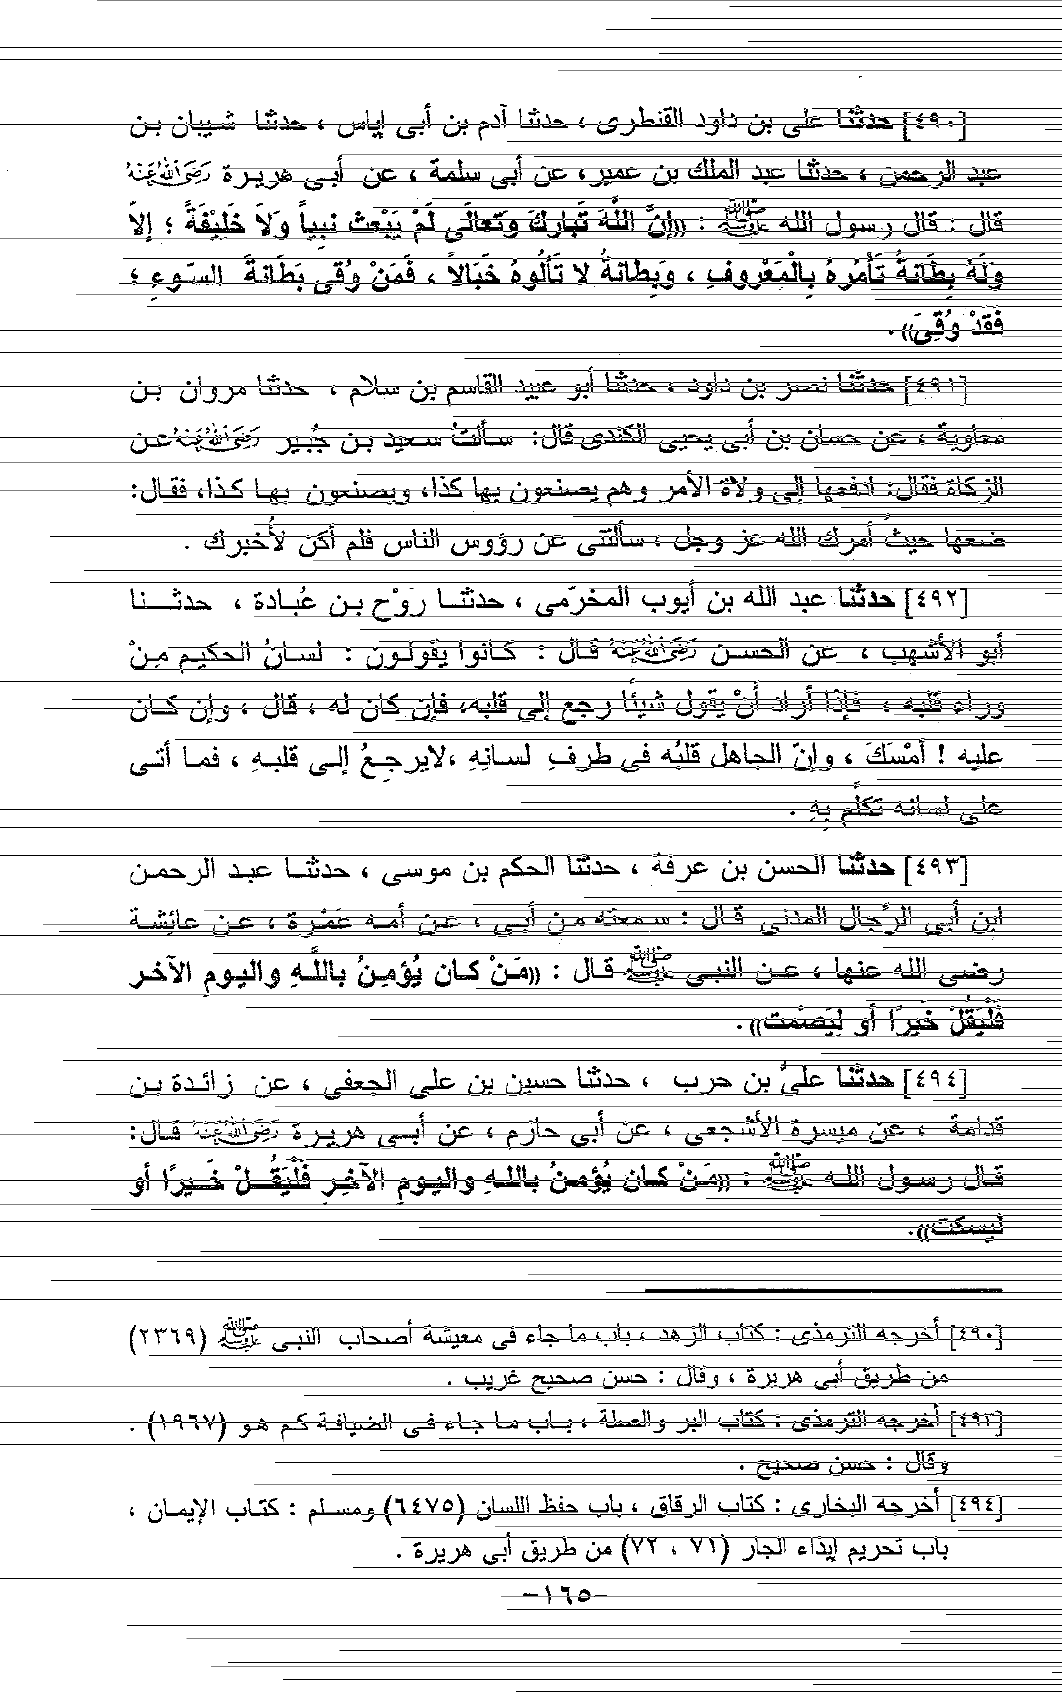 [٤٩٠] حدثنا على بن داود القنطرى ، حدثنا آدم بن أبى إياس ، حدثنا شيبان بن
عبد الرحمن ، حدثنا عبد الملك بن عمير، عن أبى سلمة ، عن أبى هريرة رَضِيَ اللهُ عَنْهُ
قال : قال رسول الله ﷺ : «إنَّ اللَّهَ تَبَاركَ وتَعالَى لَمْ يَبْعث نبِياً وَلاَ خَلِيْفَةً ؛ إلاَّ
وَلَهُ بِطَانةٌ تَأْمُرهُ بِالْمَعْروفِ ، وَبِطانةٌ لا تَأْلُوهُ خَبَالاً ، فَمَنْ وُقى بَطَانةَ السّوءِ ؛
فَقَدْ وُقِىَ» .
[٤٩١] حدثنا نصر بن داود ، حدثنا أبو عبيد القاسم بن سلام ، حدثنا مروان بن
معاوية ، عن حسان بن أبى يحيى الكندى قال: سألتُ سعيد بن جُبير رَضِيَ اللهُ عَنْهُ عن
الزكاة فقال: ادفعها إلى ولاة الأمر وهم يصنعون بها كذا، ويصنعون بها كذا، فقال:
ضعها حيثُ أمرك الله عز وجل ، سألتنى عن رؤوس الناس فلم أكن لأُخبرك .
[٤٩٢] حدثنا عبد الله بن أيوب المخرّمى ، حدثنا رَوْح بن عُبادة ، حدثنا
أبو الأشهب ، عن الحسن رَضِيَ اللهُ عَنْهُ قال : كانوا يقولون : لسانُ الحكيم مِنْ
وراء قلبه ، فإذا أراد أنْ يقول شيئًا رجع إلى قلبه، فإن كان له ، قال ، وإن كان
عليه ! أمْسَكَ ، وإنّ الجاهل قلبُه فى طرفِ لسانِهِ ،لايرجِعُ إلى قلبهِ ، فما أتى
على لسانه تكلَّم بِهِ .
[٤٩٣] حدثنا الحسن بن عرفة ، حدثنا الحكم بن موسى ، حدثنا عبد الرحمن
ابن أبى الرِّجال المدنى قال : سمعته من أبي ، عن أمه عَمْرة ، عن عائشة
رضى الله عنها ، عن النبى ﷺ قال : «مَنْ كان يُؤمِنُ باللَّهِ واليومِ الآخر
فَلْيَقُلْ خَيرًا أو لِيَصْمت» .
[٤٩٤] حدثنا علىُّ بن حرب ، حدثنا حسين بن على الجعفى ، عن زائدة بن
قدامة ، عن ميسرة الأشجعى ، عن أبي حازم ، عن أبى هريرة رَضِيَ اللهُ عَنْهُ قال:
قال رسول الله ﷺ : «مَنْ كان يُؤمنُ باللهِ واليومِ الآخِرِ فَلْيَقُلْ خَيرًا أو
ليسكت» .
[٤٩٠] أخرجه الترمذى : كتاب الزهد ، باب ما جاء فى معيشة أصحاب النبى ﷺ (٢٣٦٩)
من طريق أبى هريرة ، وقال : حسن صحيح غريب .
[٤٩٣] أخرجه الترمذى : كتاب البر والصلة ، باب ما جاء فى الضيافة كم هو (١٩٦٧) .
وقال : حسن صحيح .
[٤٩٤] أخرجه البخارى : كتاب الرقاق ، باب حفظ اللسان (٦٤٧٥) ومسلم : كتاب الإيمان ،
باب تحريم إيذاء الجار (٧١ ، ٧٢) من طريق أبى هريرة .
-١٦٥-